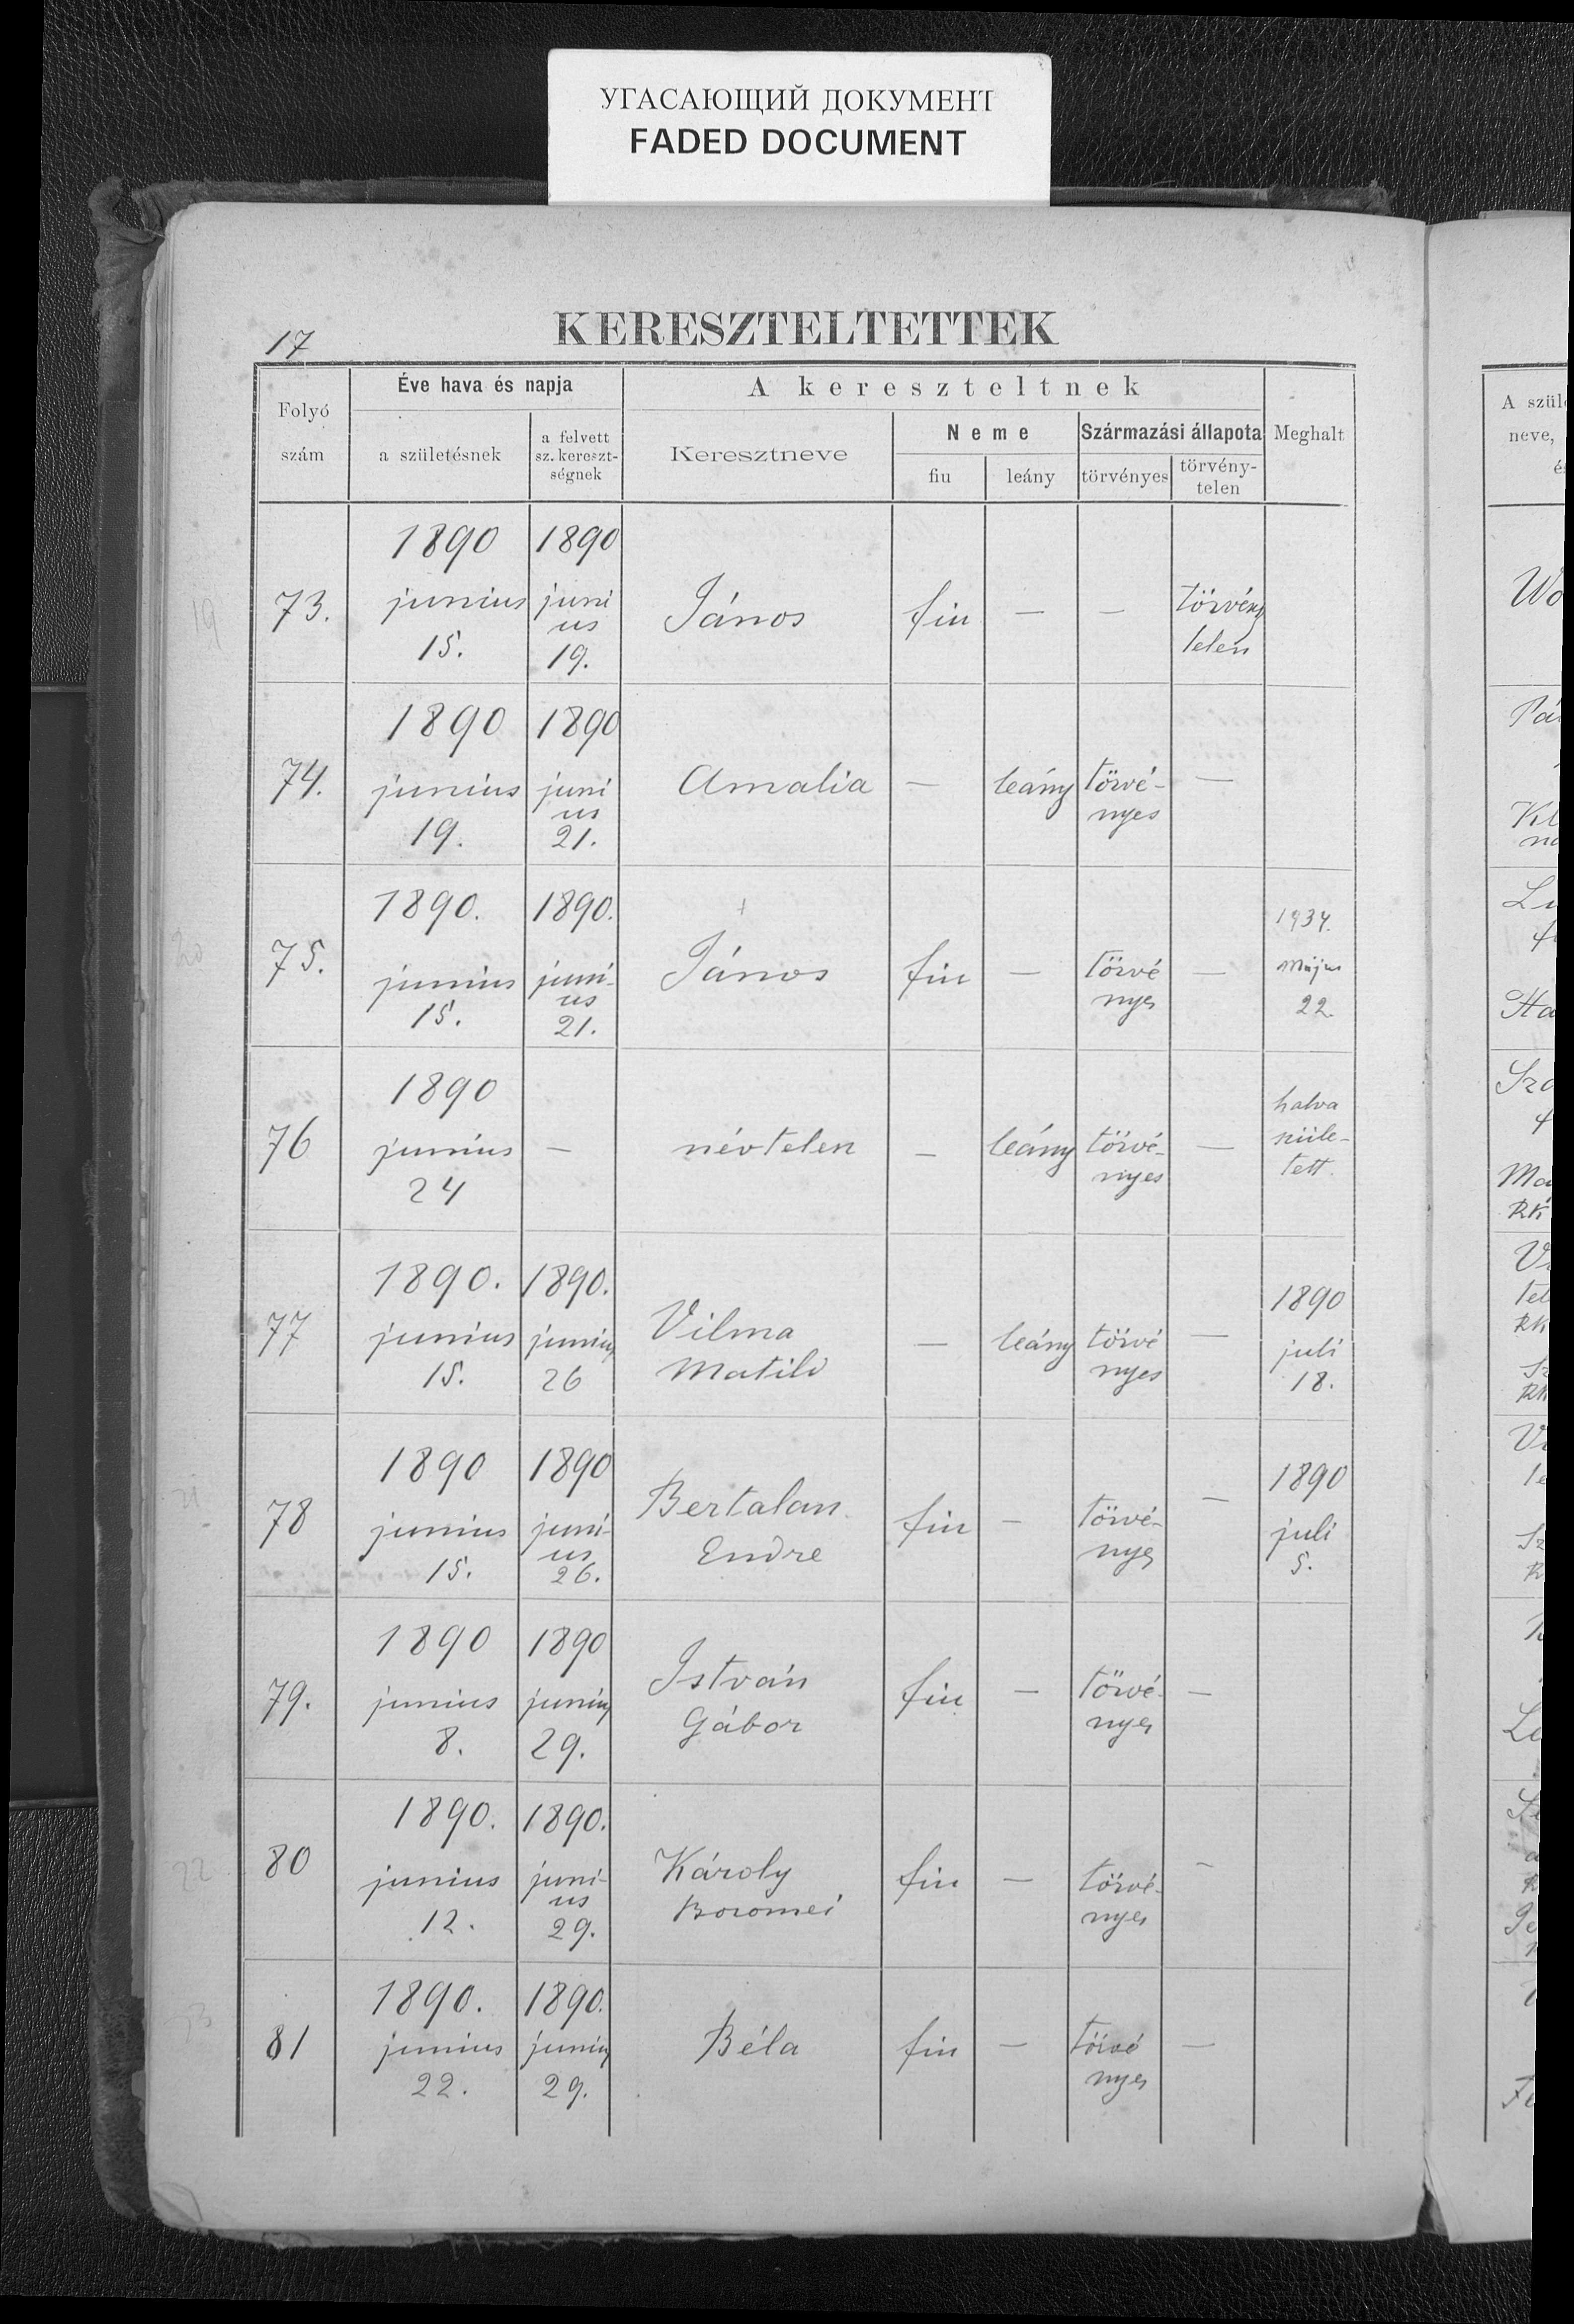 УГАСАЮЩИЙ ДОКУМЕНТ
FADED DOCUMENT
17
KERESZTELTETTEK
Folyó
szám
Éve hava és napja
a születésnek
a felvett
sz. kereszt-
ségnek
A kereszteltnek
Keresztneve
Neme
fiu
leány
Származási állapota
törvényes
törvény-
telen
Meghalt
73.
1890
junius
15.
1890
juni
us
19.
János
fiu
—
—
törvény
telen
74.
1890
junius
19.
1890
juni
us
21.
Amalia
—
leány
törvé-
nyes
—
75.
1890.
junius
15.
1890.
juni-
us
21.
János
fiu
—
törvé
nyes
—
1934.
Május
22.
76
1890
junius
24
—
névtelen
—
leány
törvé-
nyes
—
halva
szüle-
tett.
77
1890.
junius
15.
1890.
junius
26
Vilma
Matild
—
leány
törvé
nyes
—
1890
juli
18.
78
1890
junius
15.
1890
juni-
us
26.
Bertalan
Endre
fiu
—
törvé-
nyes
—
1890
juli
5.
79.
1890
junius
8.
1890
junius
29.
István
Gábor
fiu
—
törvé-
nyes
—
80
1890.
junius
12.
1890.
juni-
us
29.
Károly
Boromei
fiu
—
törvé-
nyes
—
81
1890.
junius
22.
1890.
junius
29.
Béla
fiu
—
törvé
nyes
—
A szül
neve,
é
Wo
Pá
Kl
Ha
Szo
RK
Le